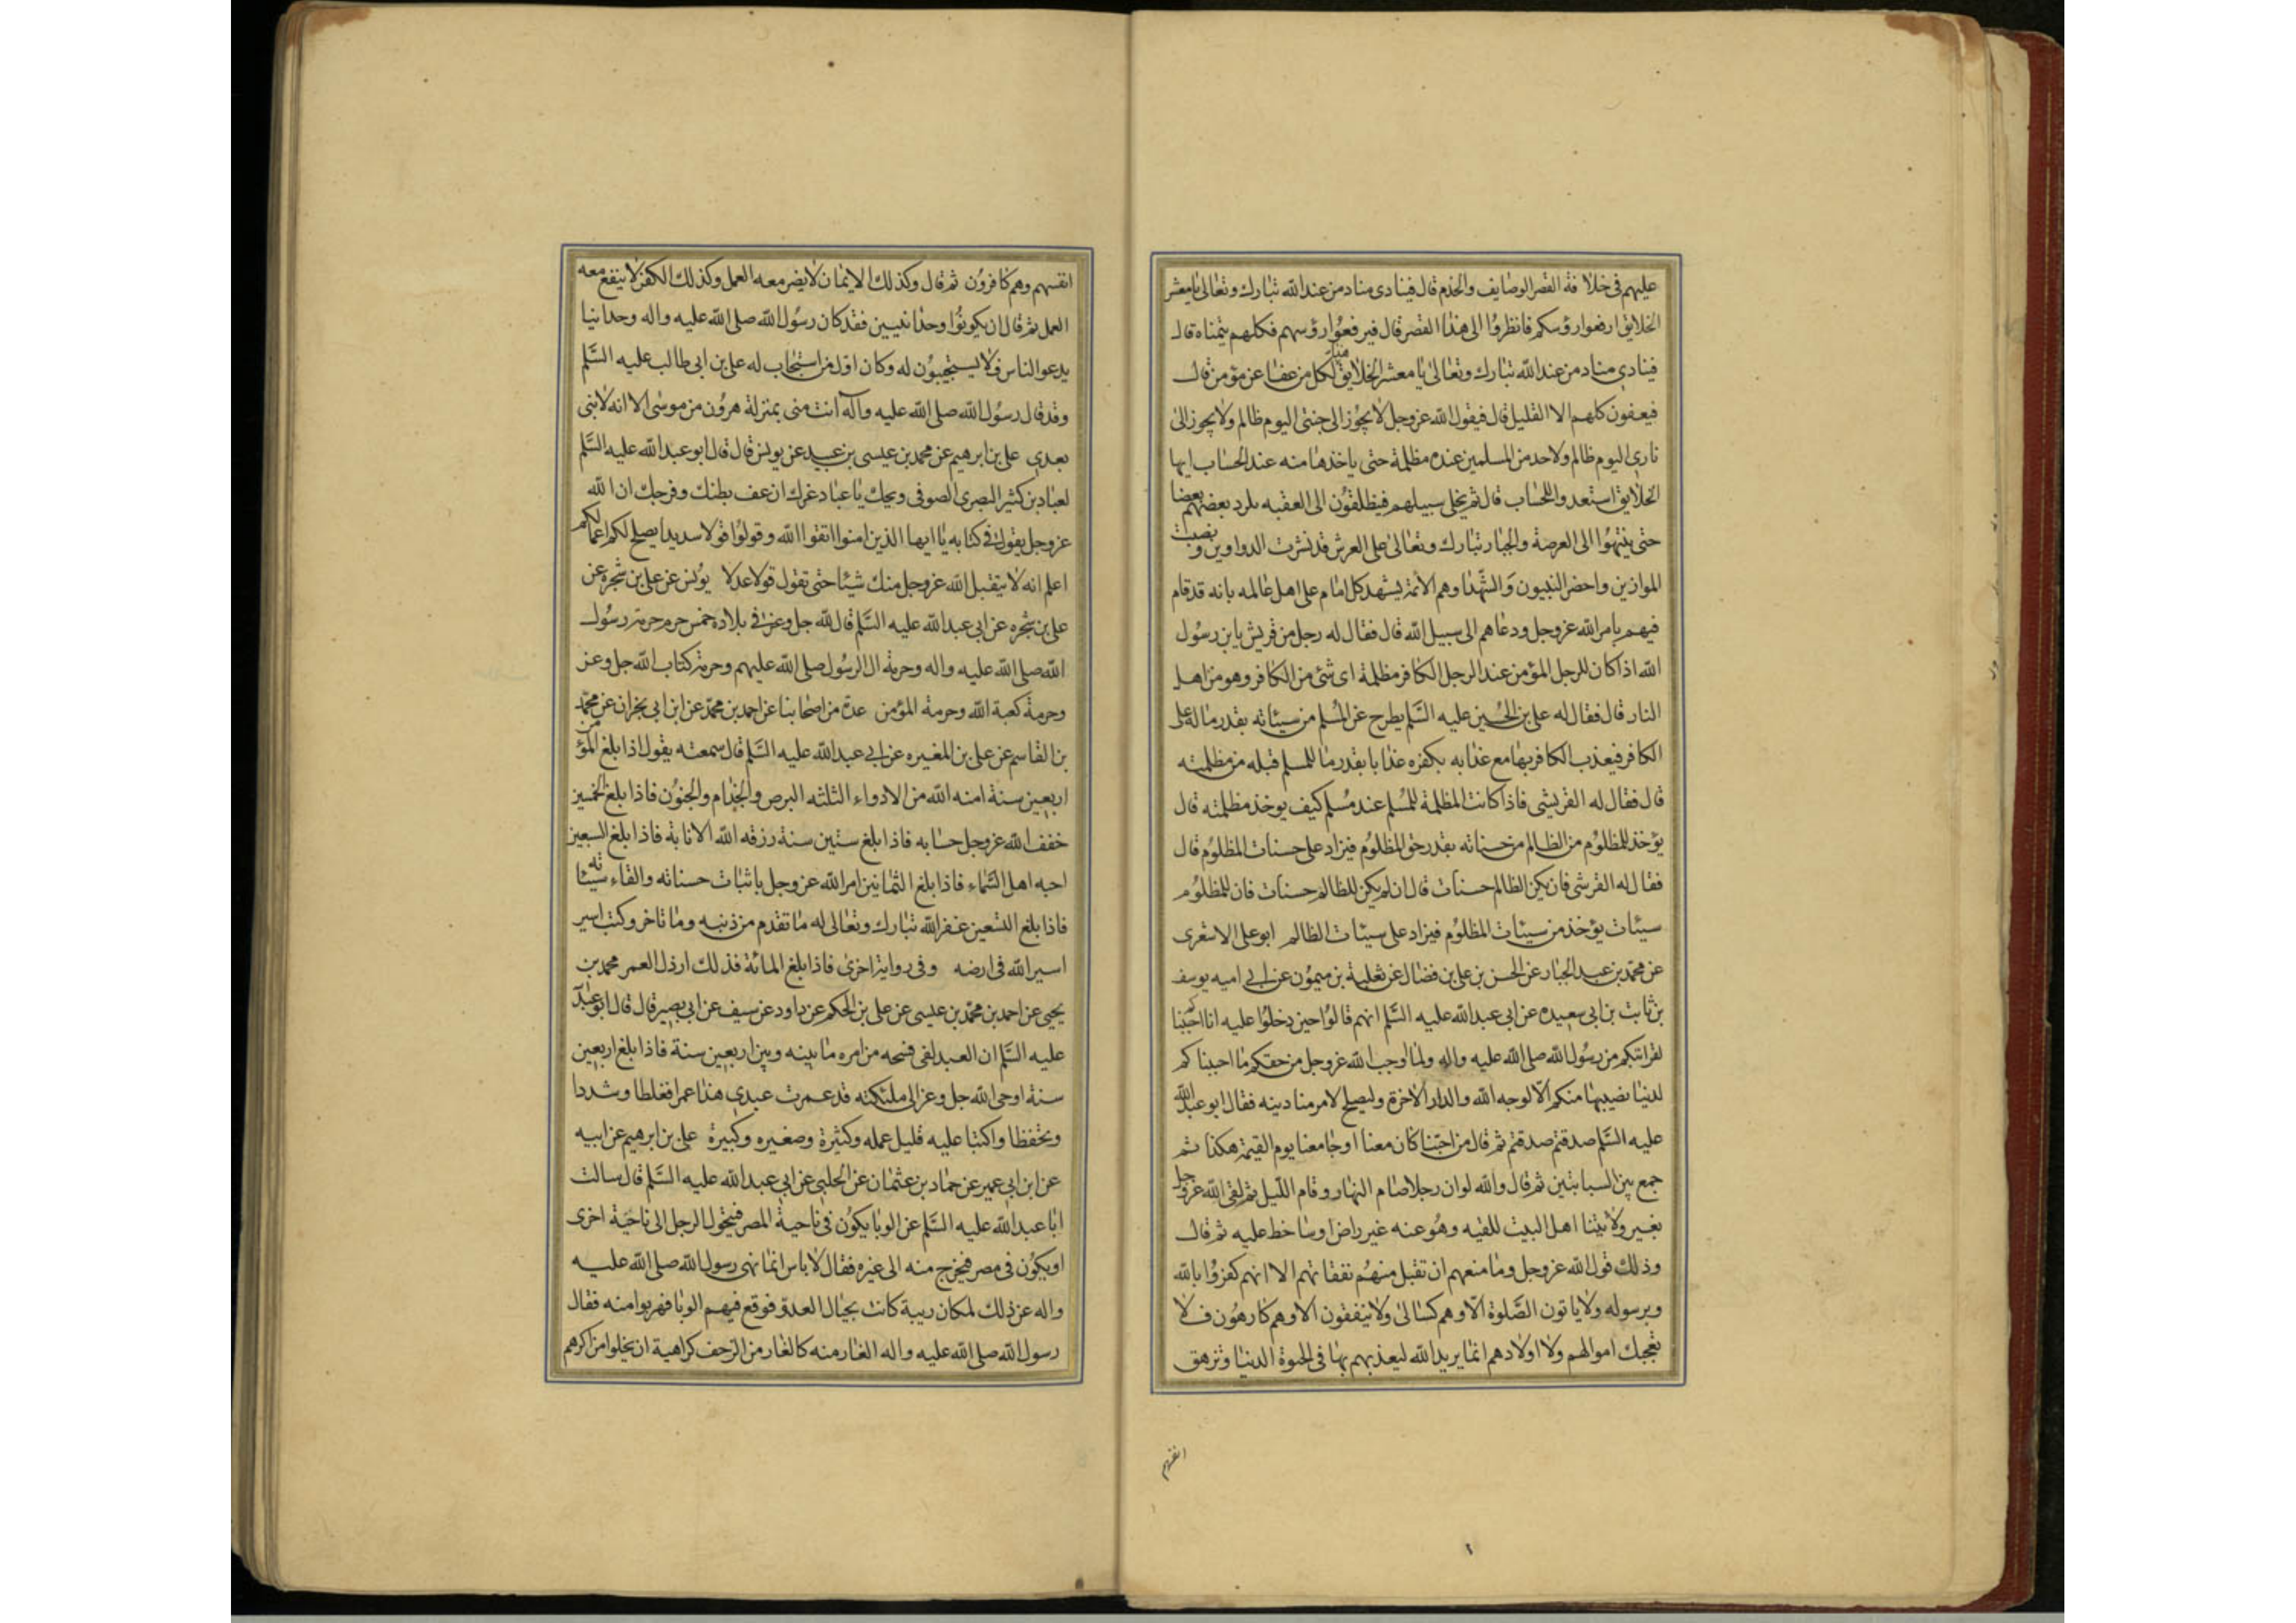 عليهم في خلافة القصر الوصايف والخدم قال فينادى مناد من عند الله تبارك وتعالى يا معشر
الخلايق ارفعوا رؤسكم فانظروا الى هذا القصر قال فيرفعوا رؤسهم فكلهم يتمناه قال
فينادي مناد من عند الله تبارك وتعالى يا معشر الخلايق هذا لكل من عفا عن مؤمن قال
فيعفون كلهم الا القليل قال فيقول الله عز وجل لا يجوز الى جنتي اليوم ظالم ولا يجوز الى
ناري اليوم ظالم ولاحد من المسلمين عنده مظلمة حتى ياخذها منه عند الحساب ايها
الخلايق استعدوا للحساب قال ثم يخلى سبيلهم فينطلقون الى العقبه يكرد بعضهم بعضا
حتى ينتهوا الى العرصة والجبار تبارك وتعالى على العرش قد نشرت الدواوين ونصبت
الموازين واحضر النبيون والشهدا وهم الائمة يشهد كل امام على اهل عالمه بانه قد قام
فيهم بامر الله عز وجل ودعاهم الى سبيل الله قال فقال له رجل من قريش يابن رسول
الله اذا كان للرجل المؤمن عند الرجل الكافر مظلمة اى شئ من الكافر وهو من اهل
النار قال فقال له على بن الحسين عليه السلم يطرح عن المسلم من سيئاته بقدر ماله على
الكافر فيعذب الكافر بها مع عذابه بكفره عذابا بقدر ما للمسلم قبله من مظلمته
قال فقال له القريشى فاذا كانت المظلمة للمسلم عند مسلم كيف يوخذ مظلمته قال
يؤخذ للمظلوم من الظالم من حسناته بقدر حق المظلوم فيزاد على حسنات المظلوم قال
فقال له القرشى فان يكن الظالم حسنات قال ان لم يكن للظالم حسنات فان للمظلوم
سيئات يؤخذ من سيئات المظلوم فيزاد على سيئات الظالم ابو على الاشعرى
عن محمد بن عبد الجبار عن الحسن بن على بن فضال عن ثعلبة بن ميمون عن ابى اميه يوسف
بن ثابت بن ابى سعيده عن ابى عبد الله عليه السلم انهم قالوا حين دخلوا عليه انا احببناكم
لقرابتكم من رسول الله صلى الله عليه واله ولما اوجب الله عز وجل من حقكم ما احببناكم
لدنيا نصيبها منكم الا لوجه الله والدار الاخرة وليصلح لامر منا دينه فقال ابو عبد الله
عليه السلم صدقتم صدقتم ثم قال من احبنا كان معنا او جا معنا يوم القيمة هكذا ثم
جمع بين السبابتين ثم قال والله لو ان رجلا صام النهار وقام الليل ثم لقى الله عز وجل
بغير ولايتنا اهل البيت للقيه وهو عنه غير راض او ساخط عليه ثم قال
وذلك قول الله عز وجل وما منعهم ان تقبل منهم نفقاتهم الا انهم كفروا بالله
وبرسوله ولا ياتون الصلوة الا وهم كسالى ولا ينفقون الا وهم كارهون فلا
تعجبك اموالهم ولا اولادهم انما يريد الله ليعذبهم بها فى الحيوة الدنيا وتزهق
انفسهم
انفسهم وهم كافرون ثم قال وكذلك الايمان لا يضر معه العمل وكذلك الكفر لا ينفع معه
العمل ثم قال ان يكونوا وحدانيين فقد كان رسول الله صلى الله عليه واله وحدانيا
يدعو الناس فلا يستجيبون له وكان اول من استجاب له على بن ابى طالب عليه السلم
وقد قال رسول الله صلى الله عليه وآله انت منى بمنزلة هرون من موسى الا انه لا نبى
بعدي على بن ابرهيم عن محمد بن عيسى بن عبيد عن يونس قال قال ابو عبد الله عليه السلم
لعباد بن كثير البصرى الصوفى ويحك يا عباد غرك ان عف بطنك وفرجك ان الله
عز وجل يقول فى كتابه يا ايها الذين امنوا اتقوا الله وقولوا قولا سديدا يصلح لكم اعمالكم
اعلم انه لا يتقبل الله عز وجل منك شيئا حتى تقول قولا عدلا يونس عن على بن شجره عن
على بن شجره عن ابى عبد الله عليه السلم قال لله جل وعز فى بلاده خمس حرم حرمة رسول
الله صلى الله عليه واله وحرمة ال الرسول صلى الله عليهم وحرمة كتاب الله جل وعز
وحرمة كعبة الله وحرمة المؤمن عدة من اصحابنا عن احمد بن محمد عن ابن ابى نجران عن محمد
بن القاسم عن على بن المغيره عن ابى عبد الله عليه السلم قال سمعته يقول اذا بلغ المؤمن
اربعين سنة امنه الله من الادواء الثلثه البرص والجذام والجنون فاذا بلغ الخمسين
خفف الله عز وجل حسابه فاذا بلغ ستين سنة رزقه الله الانابة فاذا بلغ السبعين
احبه اهل السماء فاذا بلغ الثمانين امر الله عز وجل باثبات حسناته والقاء سيئاته
فاذا بلغ التسعين غفر الله تبارك وتعالى له ما تقدم من ذنبه وما تاخر وكتب اسير
اسير الله فى ارضه وفى رواية اخرى فاذا بلغ المائة فذلك ارذل العمر محمد بن
يحيى عن احمد بن محمد بن عيسى عن على بن الحكم عن داود عن سيف عن ابى بصير قال قال ابو عبد الله
عليه السلم ان العبد لفى فسحه من امره ما بينه وبين اربعين سنة فاذا بلغ اربعين
سنة اوحى الله جل وعز الى ملئكته قد عمرت عبدي هذا عمرا فغلظا وشددا
وتحفظا واكتبا عليه قليل عمله وكثيرة وصغيره وكبيرة على بن ابرهيم عن ابيه
عن ابن ابى عمير عن حماد بن عثمان عن الحلبى عن ابى عبد الله عليه السلم قال سالت
ابا عبد الله عليه السلم عن الوبا يكون فى ناحية المصر فيتحول الرجل الى ناحية اخرى
او يكون فى مصر فيخرج منه الى غيره فقال لا باس انما نهى رسول الله صلى الله عليه
واله عن ذلك لمكان ربيبة كانت بحيال العدو فوقع فيهم الوبا فهربوا منه فقال
رسول الله صلى الله عليه واله الفار منه كالفار من الزحف كراهية ان يخلوا مراكزهم